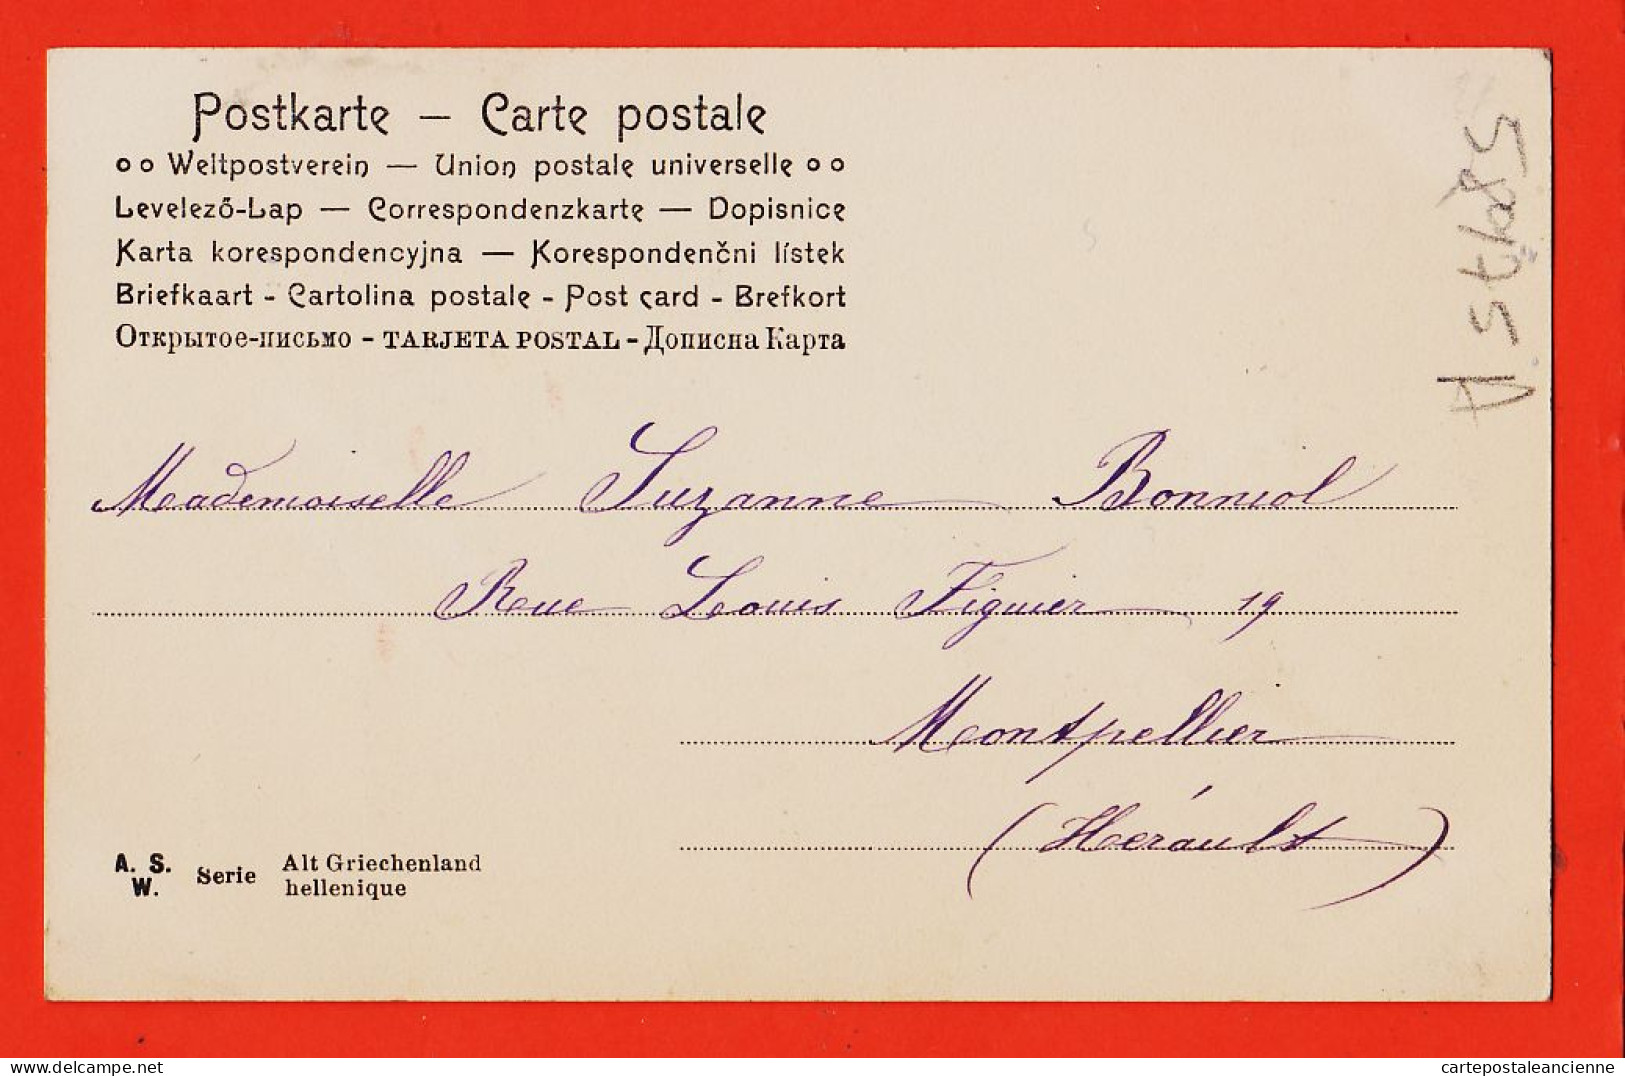 Postkarte — Carte postale
Weltpostverein — Union postale universelle
Levelező-Lap — Correspondenzkarte — Dopisnice
Karta korespondencyjna — Korespondenčni lístek
Briefkaart - Cartolina postale - Post card - Brefkort
Открытое-письмо - TARJETA POSTAL - Дописна Карта
Mademoiselle Suzanne Bonniol
Rue Louis Figuier 19
Montpellier
(Hérault)
A. S. W. Serie Alt Griechenland
hellenique
cartepostaleancienne